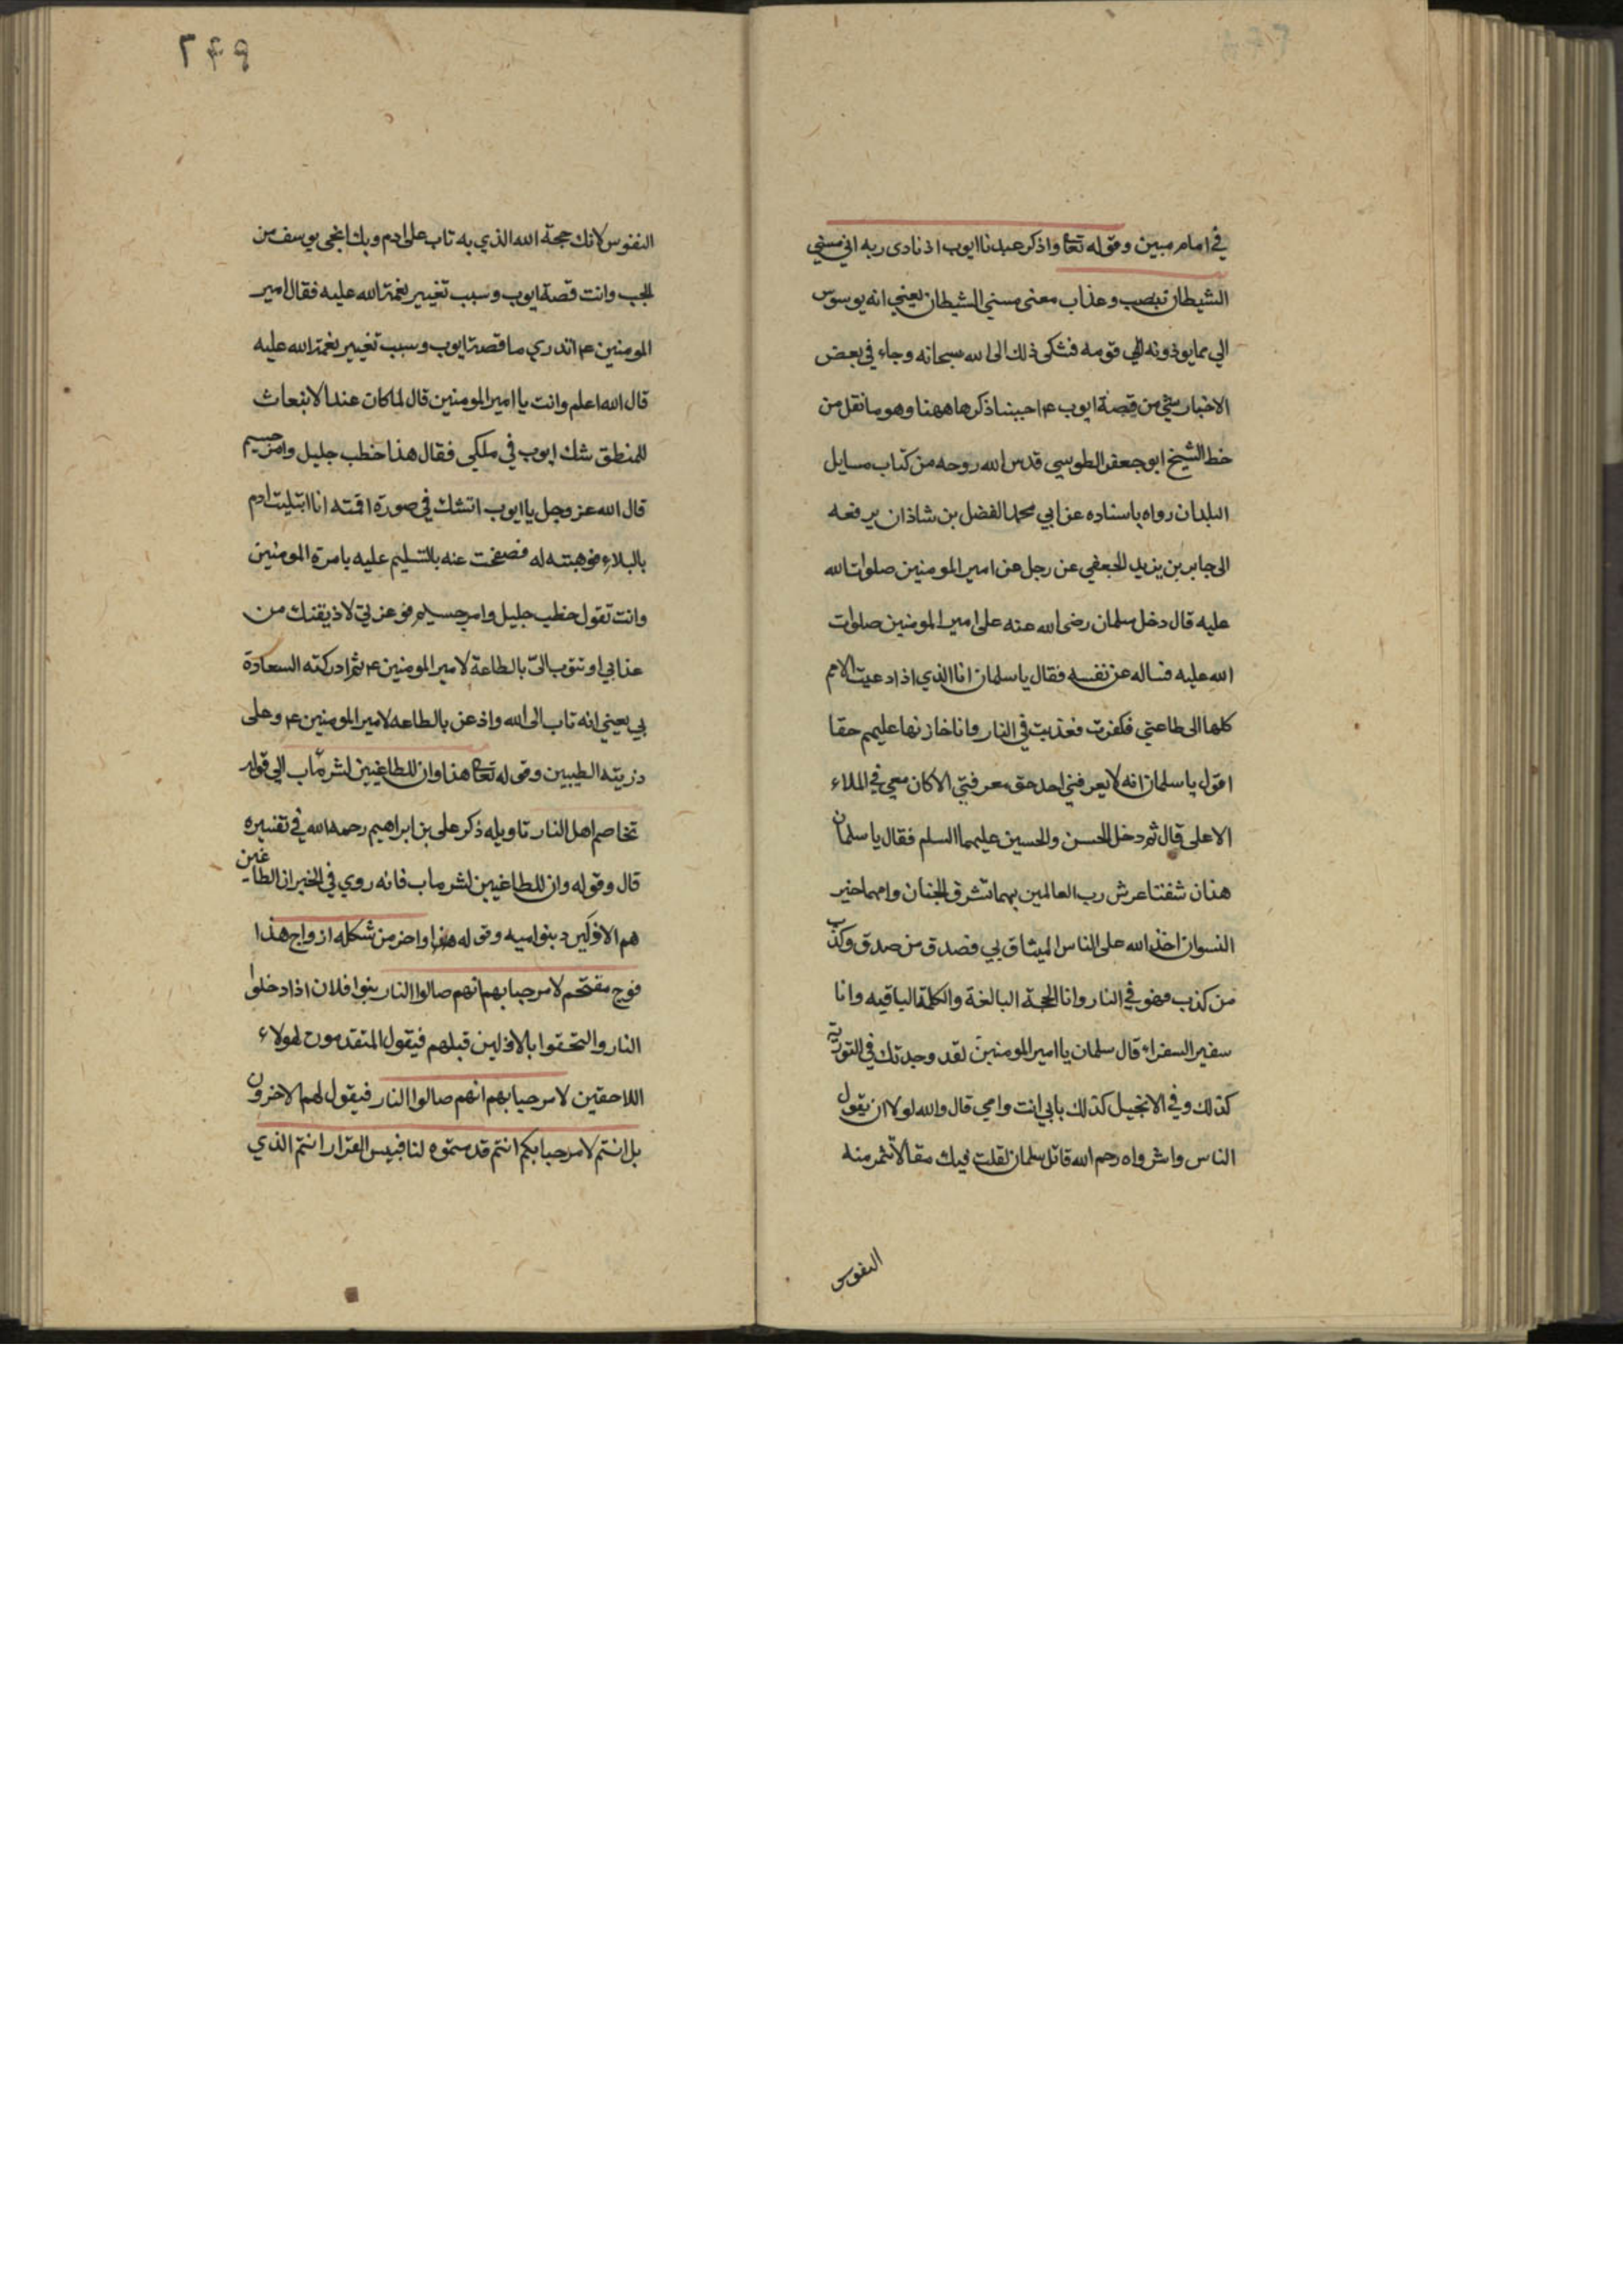 في امام مبين وقوله تعا واذكر عبدنا ايوب اذ نادى ربه اني مسني
الشيطان بنصب وعذاب معنى مسني الشيطان يعني انه يوسوس
الي مما يوذونه الي قومه فشكى ذلك الى الله سبحانه وجاء في بعض
الاخبار شي من قصة ايوب ع احببنا ذكرها ههنا وهو ما نقل من
خط الشيخ ابو جعفر الطوسي قدس الله روحه من كتاب مسايل
البلدان رواه باسناده عن ابي محمد الفضل بن شاذان يرفعه
الى جابر بن يزيد الجعفي عن رجل عن امير المومنين صلوات الله
عليه قال دخل سلمان رضى الله عنه على امير المومنين صلوات
الله عليه فساله عن نفسه فقال يا سلمان انا الذي اذا دعيت الامم
كلها الى طاعتي فكفرت فعذبت في النار وانا خازنها عليهم حقا
اقول يا سلمان انه لا يعرفني احد حق معرفتي الا كان معي في الملاء
الاعلى قال ثم دخل الحسن والحسين عليهما السلم فقال يا سلمان
هذان شفتا عرش رب العالمين بهما تشرق الجنان وامهما خير
النسوان اخذ الله على الناس الميثاق بي فصدق من صدق وكذب
من كذب فهو في النار وانا الحجة البالغة والكلمة الباقيه وانا
سفير السفراء قال سلمان يا امير المومنين لقد وجدتك في التورية
كذلك وفي الانجيل كذلك بابي انت وامي قال والله لولا ان يقول
الناس واشواه رحم الله قاتل سلمان لقلت فيك مقالا تشمر منه
النفوس
٢٤٩
النفوس لانك حجة الله الذي به تاب على ادم وبك انجى يوسف من
الجب وانت قصة ايوب وسبب تغيير نعمة الله عليه فقال امير
المومنين ع اتدري ما قصة ايوب وسبب تغيير نعمة الله عليه
قال الله اعلم وانت يا امير المومنين قال لما كان عند الانبعاث
للمنطق شك ايوب في ملكي فقال هذا خطب جليل وامر جسيم
قال الله عز وجل يا ايوب اتشك في صورة اقمته انا ابتليت ادم
بالبلاء فوهبته له فصفحت عنه بالتسليم عليه بامرة المومنين
وانت تقول خطب جليل وامر جسيم فوعزتي لاذيقنك من
عذابي او تتوب الى بالطاعة لامير المومنين ع ثم ادركته السعادة
بي يعني انه تاب الى الله واذعن بالطاعه لامير المومنين ع وعلى
ذريته الطيبين وقوله تعا هذا وان للطاغيين لشر مآب الى قوله
تخاصم اهل النار تاويله ذكر على بن ابراهيم رحمه الله في تفسيره
قال وقوله وان للطاغيين لشر ماب فانه روي في الخبر ان الطاغين
هم الاولين وبنو اميه وقوله واخر من شكله ازواج هذا
فوج مقتحم لا مرحبا بهم انهم صالوا النار بنوا فلان اذا دخلوا
النار والتحقوا بالاولين قبلهم فيقول المتقدمون لهولاء
اللاحقين لا مرحبا بهم انهم صالوا النار فيقول لهم الاخرون
بل انتم لا مرحبا بكم انتم قدمتموه لنا فبيس القرار انتم الذي